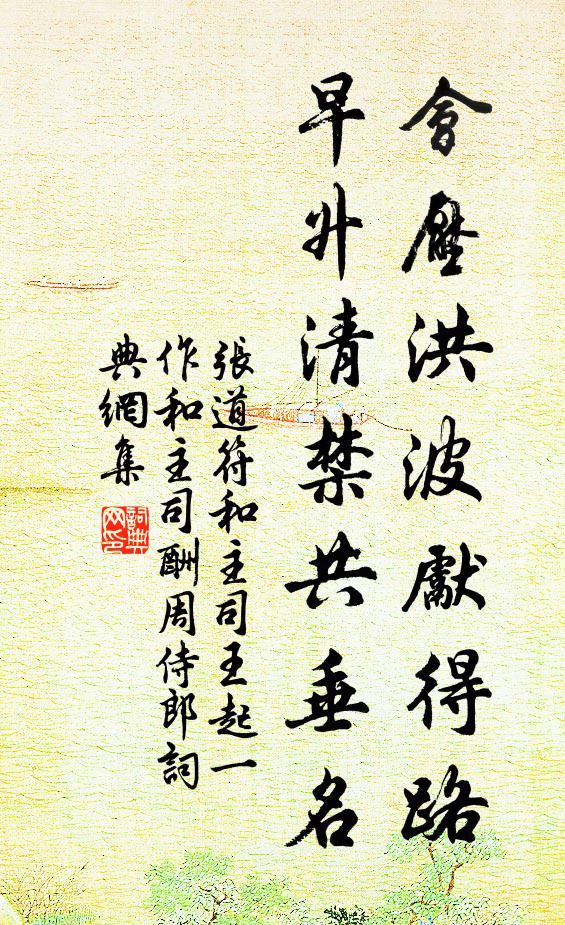 會壓洪波獻得路
早升清禁共垂名
張道符和主司王起一
作和主司酬周侍郎詞
典網集
詞典网印